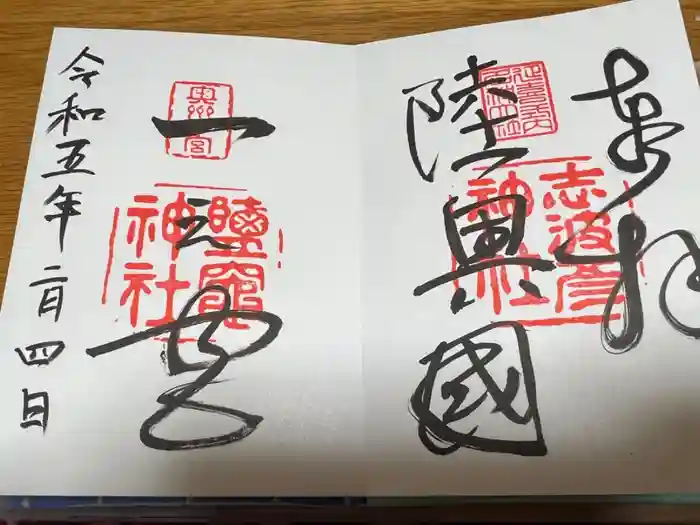 奉拝
陸奥國
志波彦
神社
一之宮
奥州一宮
鹽竈
神社
令和五年二月四日